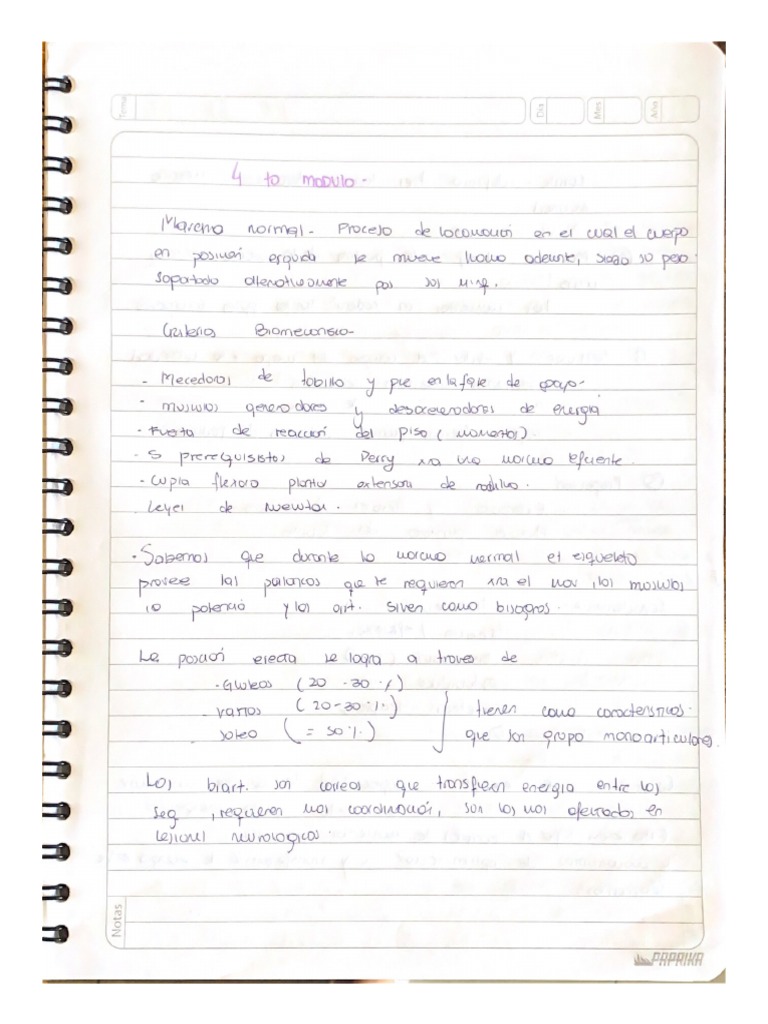 Tema
Dia
Mes
Año
4 to modulo.
Marcha normal. Proceso de locomoción en el cual el cuerpo
en posición erguida se mueve hacia adelante, siendo su peso
soportado alternativamente por sus
Criterios Biomecanico
- Mecedoras de tobillo y pie en la fase de apoyo.
- musculos generadores y desaceneradores de energia
- Fuerza de reacción del piso (momentos).
- 5 prerrequisistos de Perry una marcha eficiente.
- Cupla flexora plantar extensora de rodilla.
Leyes de Newton.
. Sabemos que durante la marcha normal el esqueleto
provee las palancas que se requieren el mov, los musculos
la potencia y las art. sirven como bisagras.
La posición erecta se logra a traves de
. Gluteos (20 - 30 %)
. vastos (20 - 30 %)
. soleo (= 50 %)
tienen como caracteristicas
que son grupo monoarticulares.
Los biart. son correas que transfieren energia entre los
seg, requieren mas coordinación, son los mas afectados en
lesiones neurologicas.
Notas
PAPRIKA